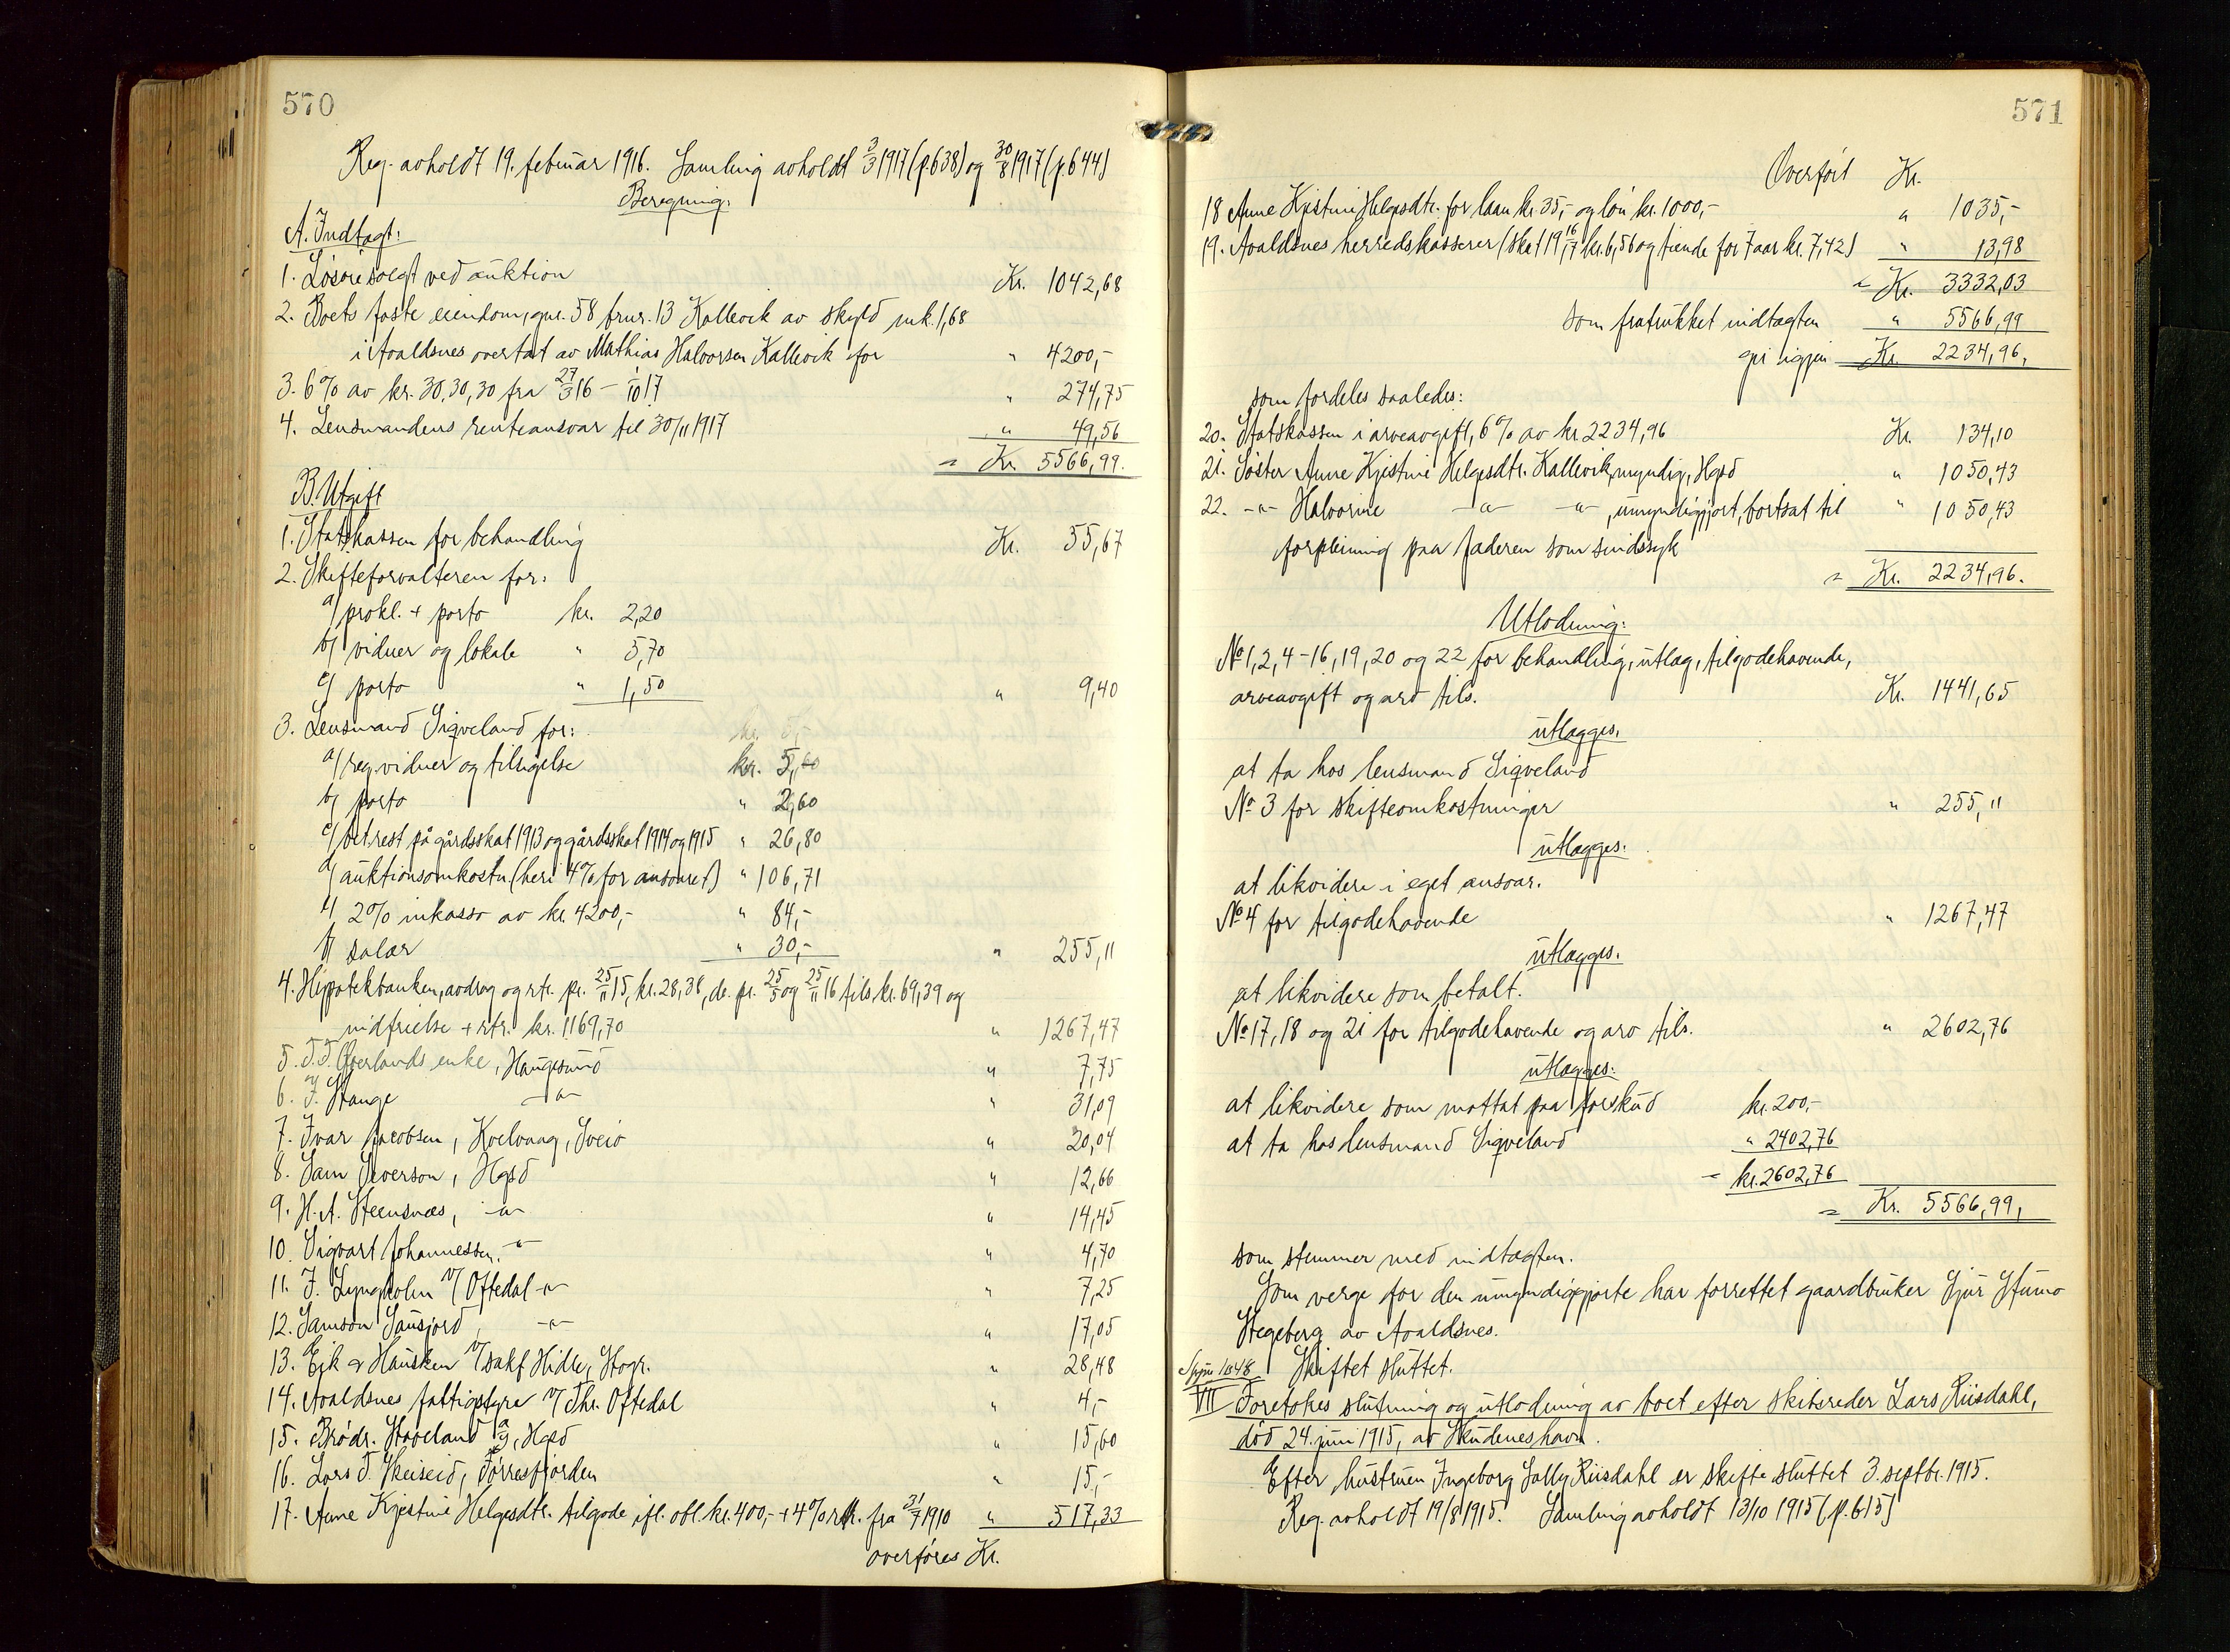 570
Reg. avholdt 19. februar 1916. Samling avholdt 3/3 1917 (p.638) og 30/8 1917 (p.644)
Beregning:
A. Indtægt:
1. Løsøre solgt ved auktion Kr. 1042,68
2. Boets faste eiendom, gnr. 58 brnr. 13 Kallevik av skyld mk. 1,68
i Avaldsnes overtat av Mathias Halvorsen Kallevik for " 4200,-
3. 6% av kr. 30,30,30 fra 27/3 16 - 1/10 17 " 274,75
4. Lensmandens renteansvar til 30/11 1917 " 49,56
= Kr. 5566,99.
B. Utgift
1. Statskassen for behandling Kr. 55,67
2. Skifteforvalteren for:
a/ prokl. + porto kr. 2,20
b/ vidner og lokale " 5,70
c/ porto " 1,50 " 9,40
3. Lensmand Sigveland for:
a/ reg. vidner og tilsigelse kr. 5,00
b/ porto " 2,60
c/ bet. rest på gårdsskat 1913 og gårdsskat 1914 og 1915 " 26,80
d/ auktionsomkostn (heri 4% for ansvaret) " 106,71
e/ 2% inkasso av kr. 4200,- " 84,-
f/ salær " 30,- " 255,11
4. Hypotekbanken, avdrag og rtr. pr. 25/11 15, kr. 28,38, do. pr. 25/5 og 25/11 16 tils kr. 69,39 og
indfrielse + rtr. kr. 1169,70 " 1267,47
5. T.T. Overlands enke, Haugesund " 7,75
6. J. Stange -"- " 31,09
7. Ivar Jacobsen, Kvelvaag, Sveio " 20,04
8. Sam Severson, Hgsd " 12,66
9. H.A. Steensnæs, -"- " 14,45
10. Sigvart Johannessen. -"- " 4,70
11. J. Lyngholm v/ Oftedal -"- " 7,25
12. Samson Sausjord, -"- " 17,05
13. Eik & Hausken v/ sakf Hidle, Stvgr. " 28,48
14. Avaldsnes fattigstyre v/ Thr. Oftedal " 4,-
15. Brødr. Staveland, Hgsd " 15,60
16. Lars T. Skeiseid, Førresfjorden " 15,-
17. Anne Kjestine Helgesdtr. tilgode ifl. obl. kr. 400,- + 4% rtr. fra 31/7 1910 " 517,33
overføres Kr.
571
Overført Kr.
18 Anne Kjestine Helgesdtr. for laan kr. 35,- og løn kr. 1000,- " 1035,-
19. Avaldsnes herredskasserer (skat 19 16/17 kr. 6,56 og tiende for 7 aar kr. 7,42) " 13,98
= Kr. 3332,03
som fratrukket indtægten " 5566,99
gir igjen Kr. 2234,96.
som fordeles saaledes:
20. Statskassen i arveavgift, 6% av kr 2234,96 Kr. 134,10
21. Søster Anne Kjestine Helgesdtr. Kallevik, myndig, Hgsd " 1050,43
22. -"- Halvorine -"- -"-, umyndiggjort, bortsat til " 1050,43
forpleining paa Jæderen som sindssyk
= Kr. 2234,96.
Utlodning:
No 1, 2, 4-16, 19, 20 og 22 for behandling, utlæg, tilgodehavende,
arveavgift og arv tils. Kr. 1441,65
utlægges.
at ta hos lensmand Sigveland
No 3 for skifteomkostninger " 255,11
utlægges:
at likvidere i eget ansvar.
No 4 for tilgodehavende " 1267,47
utlægges.
at likvidere som betalt.
No 17, 18 og 21 for tilgodehavende og arv tils. " 2602,76
utlægges:
at likvidere som mottat paa forskud kr. 200,-
at ta hos lensmand Sigveland " 2402,76
= kr. 2602,76
= Kr. 5566,99,
som stemmer med indtægten.
Som verge for den umyndiggjorte har forrettet gaardbruker Sjur
Stegeberg av Avaldsnes.
Skiftet sluttet.
VII Foretokes slutning og utlodning av boet efter skibsreder Lars Riisdahl,
død 24. juni 1915, av Skudeneshavn.
Efter hustruen Ingeborg Sally Riisdahl er skifte sluttet 3. septbr. 1915.
Reg. avholdt 19/8 1915. Samling avholdt 13/10 1915 (p.615)